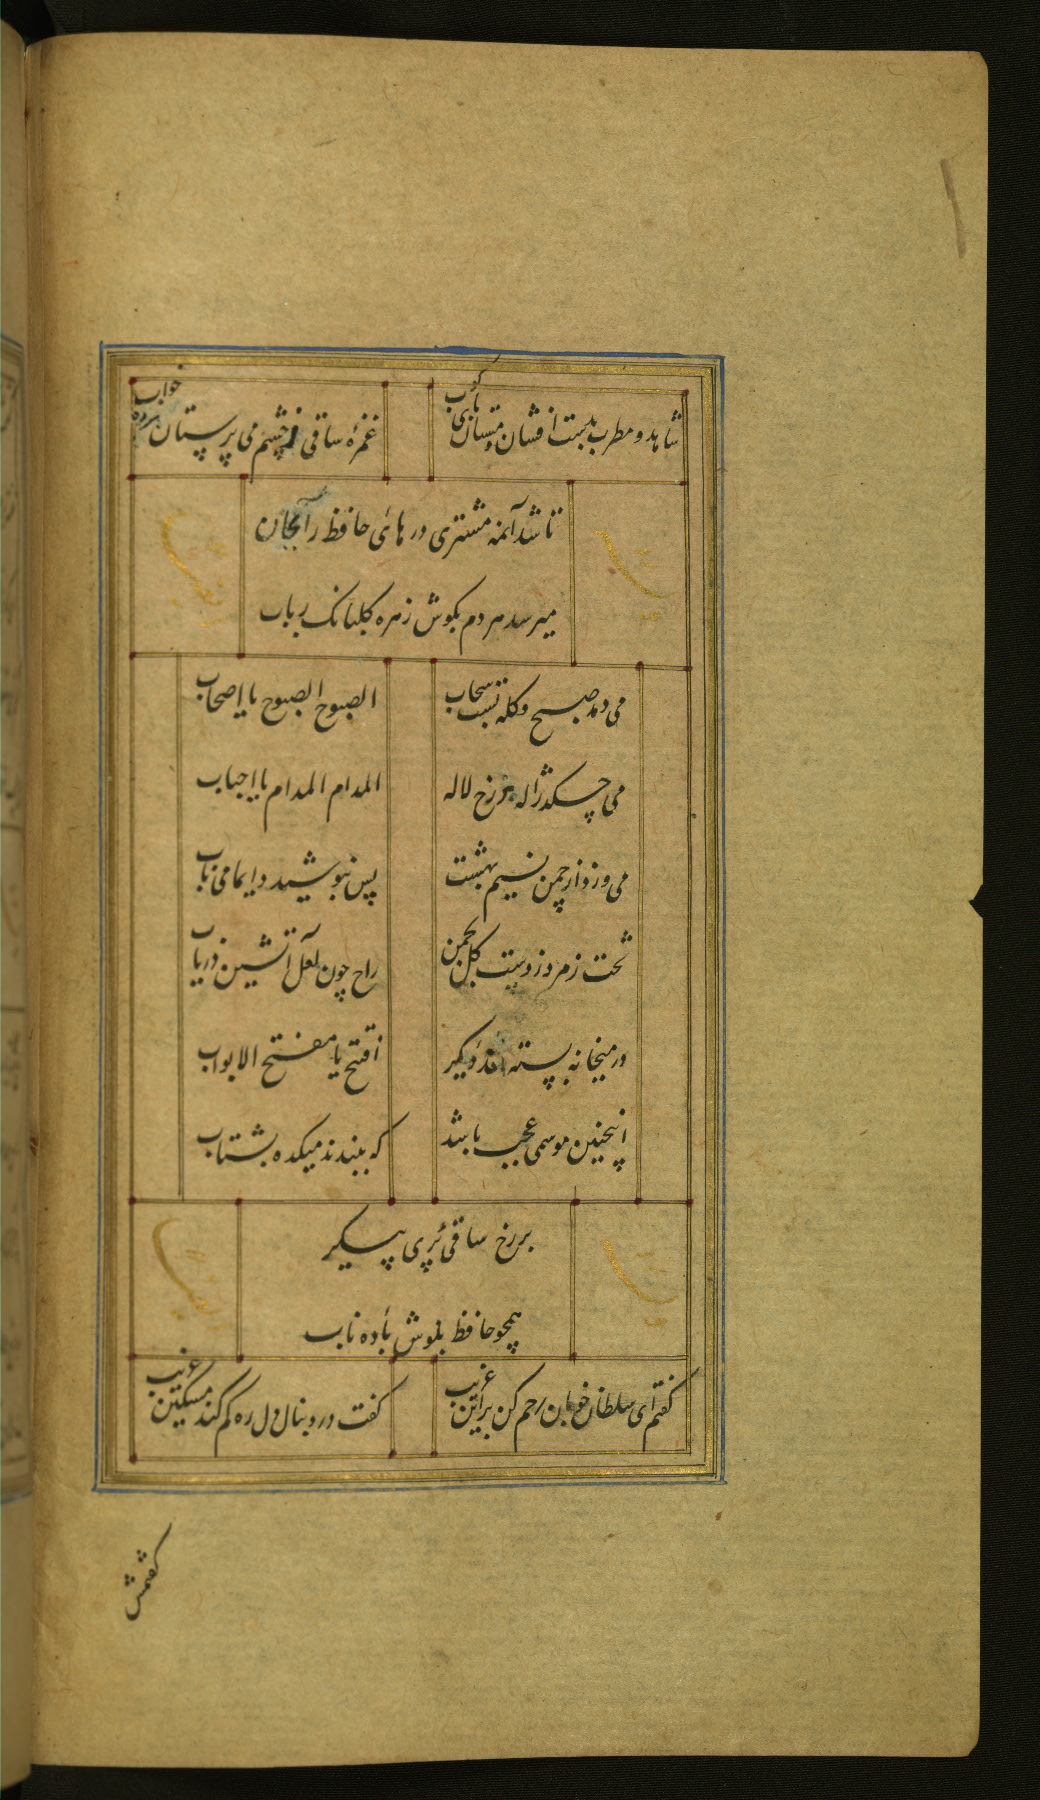 شاهد و مطرب بدست افشان و مستان پای کوب
غمزهٔ ساقی ز چشم می پرستان برده خواب
تا شد آنمه مشتری درهای حافظ را بجان
میرسد هر دم بکوش زهره کلبانک رباب
می دمد صبح و کله بست سحاب
الصبوح الصبوح یا اصحاب
می چکد ژاله بر رخ لاله
المدام المدام یا احباب
می وزد از چمن نسیم بهشت
پس بنوشید دایما می ناب
تخت زمرد زدست کل بچمن
راح چون لعل آتشین دریاب
در میخانه بسته اند دکر
افتح یا مفتح الابواب
اینچنین موسمی عجب باشد
که ببندند میکده بشتاب
بر رخ ساقی پری پیکر
همچو حافظ بنوش باده ناب
کفتم ای سلطان خوبان رحم کن بر این غریب
کفت در دنبال دل ره کم کند مسکین غریب
کفتمش